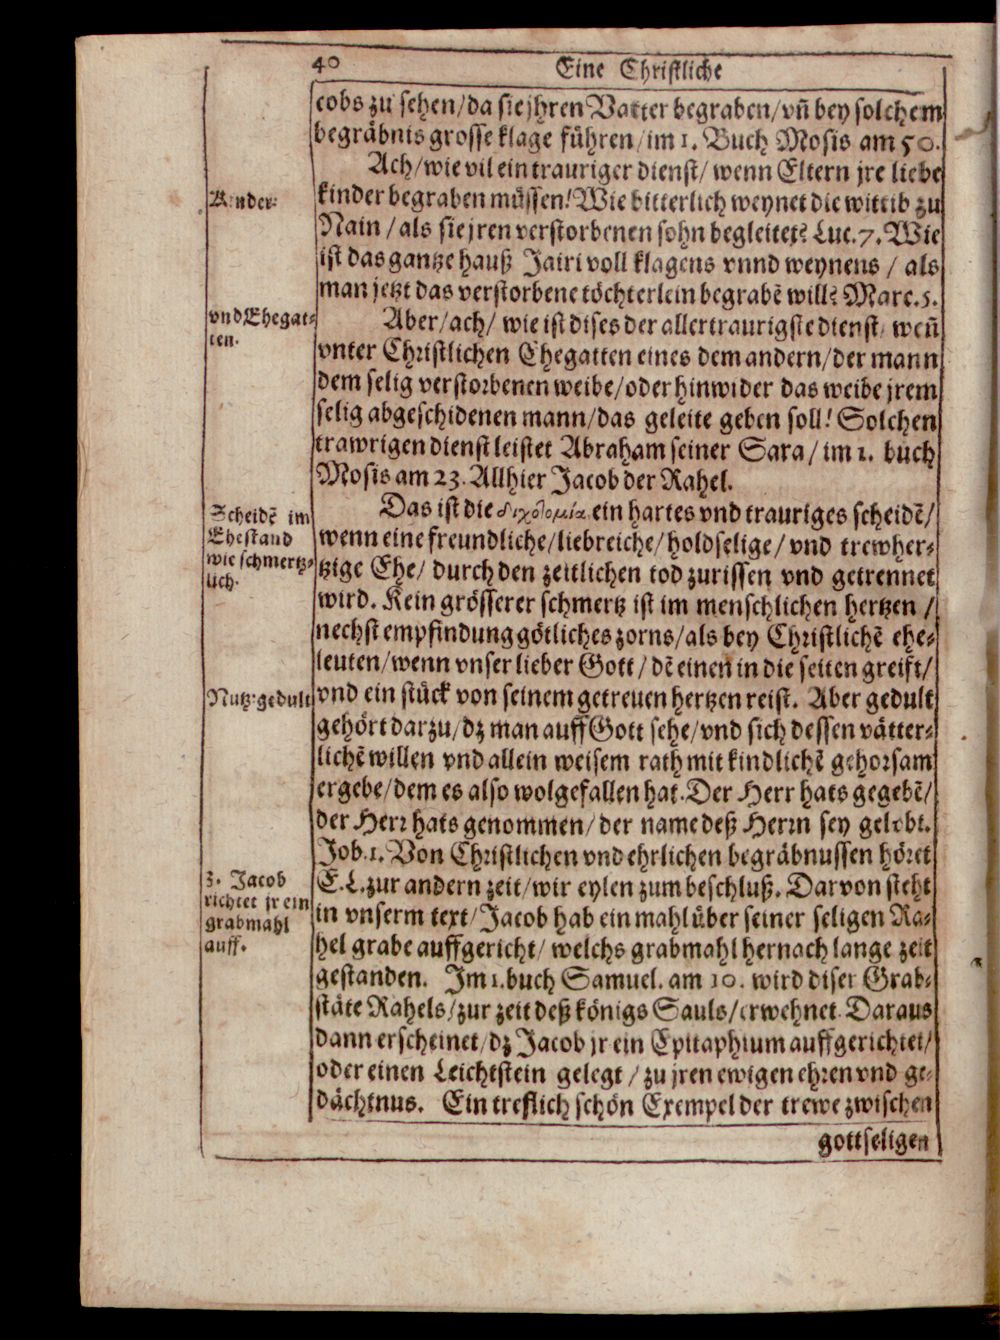 40
Eine Christliche
cobs zu sehen/da sie jhren Vatter begraben/vñ bey solchem
begräbnis grosse klage führen/im 1. Buch Mosis am 50.
Ach/wie vil ein trauriger dienst/wenn Eltern jre liebe
Kinder.
kinder begraben müssen! Wie bitterlich weynet die wittib zu
Nain/als sie jren verstorbenen sohn begleitet? Luc. 7. Wie
ist das gantze hauß Jairi voll klagens vnnd weynens/als
man jetzt das verstorbene töchterlein begrabē will? Marc. 5.
vnd Ehegat-
ten.
Aber/ach/wie ist dises der allertraurigste dienst/weñ
vnter Christlichen Ehegatten eines dem andern/der mann
dem selig verstorbenen weibe/oder hinwider das weibe jrem
selig abgeschidenen mann/das geleite geben soll! Solchen
trawrigen dienst leistet Abraham seiner Sara/im 1. buch
Mosis am 23. Allhier Jacob der Rahel.
Scheidē im
Ehestand
wie schmertz-
lich.
Das ist die διχοτομία ein hartes vnd trauriges scheidē/
wenn eine freundliche/liebreiche/holdselige/vnd trewher-
tzige Ehe/durch den zeitlichen tod zurissen vnd getrennet
wird. Kein grösserer schmertz ist im menschlichen hertzen/
nechst empfindung götliches zorns/als bey Christlichē ehe-
leuten/wenn vnser lieber Gott/dē einen in die seiten greift/
Nutz: gedult
vnd ein stück von seinem getreuen hertzen reist. Aber gedult
gehört darzu/dz man auff Gott sehe/vnd sich dessen vätter-
lichē willen vnd allein weisem rath mit kindlichē gehorsam
ergebe/dem es also wolgefallen hat. Der Herr hats gegebē/
der Herr hats genommen/der name deß Herrn sey gelobt.
Job. 1. Von Christlichen vnd ehrlichen begräbnussen höret
3. Jacob
richtet jr ein
grabmahl
auff.
E. L. zur andern zeit/wir eylen zum beschluß. Darvon steht
in vnserm text/Jacob hab ein mahl über seiner seligen Ra-
hel grabe auffgericht/welchs grabmahl hernach lange zeit
gestanden. Im 1. buch Samuel. am 10. wird diser Grab-
stäte Rahels/zur zeit deß königs Sauls/erwehnet. Daraus
dann erscheinet/dz Jacob jr ein Epitaphium auffgerichtet/
oder einen Leichtstein gelegt/zu jren ewigen ehren vnd ge-
dächtnus. Ein treflich schön Exempel der trewe zwischen
gottseligen